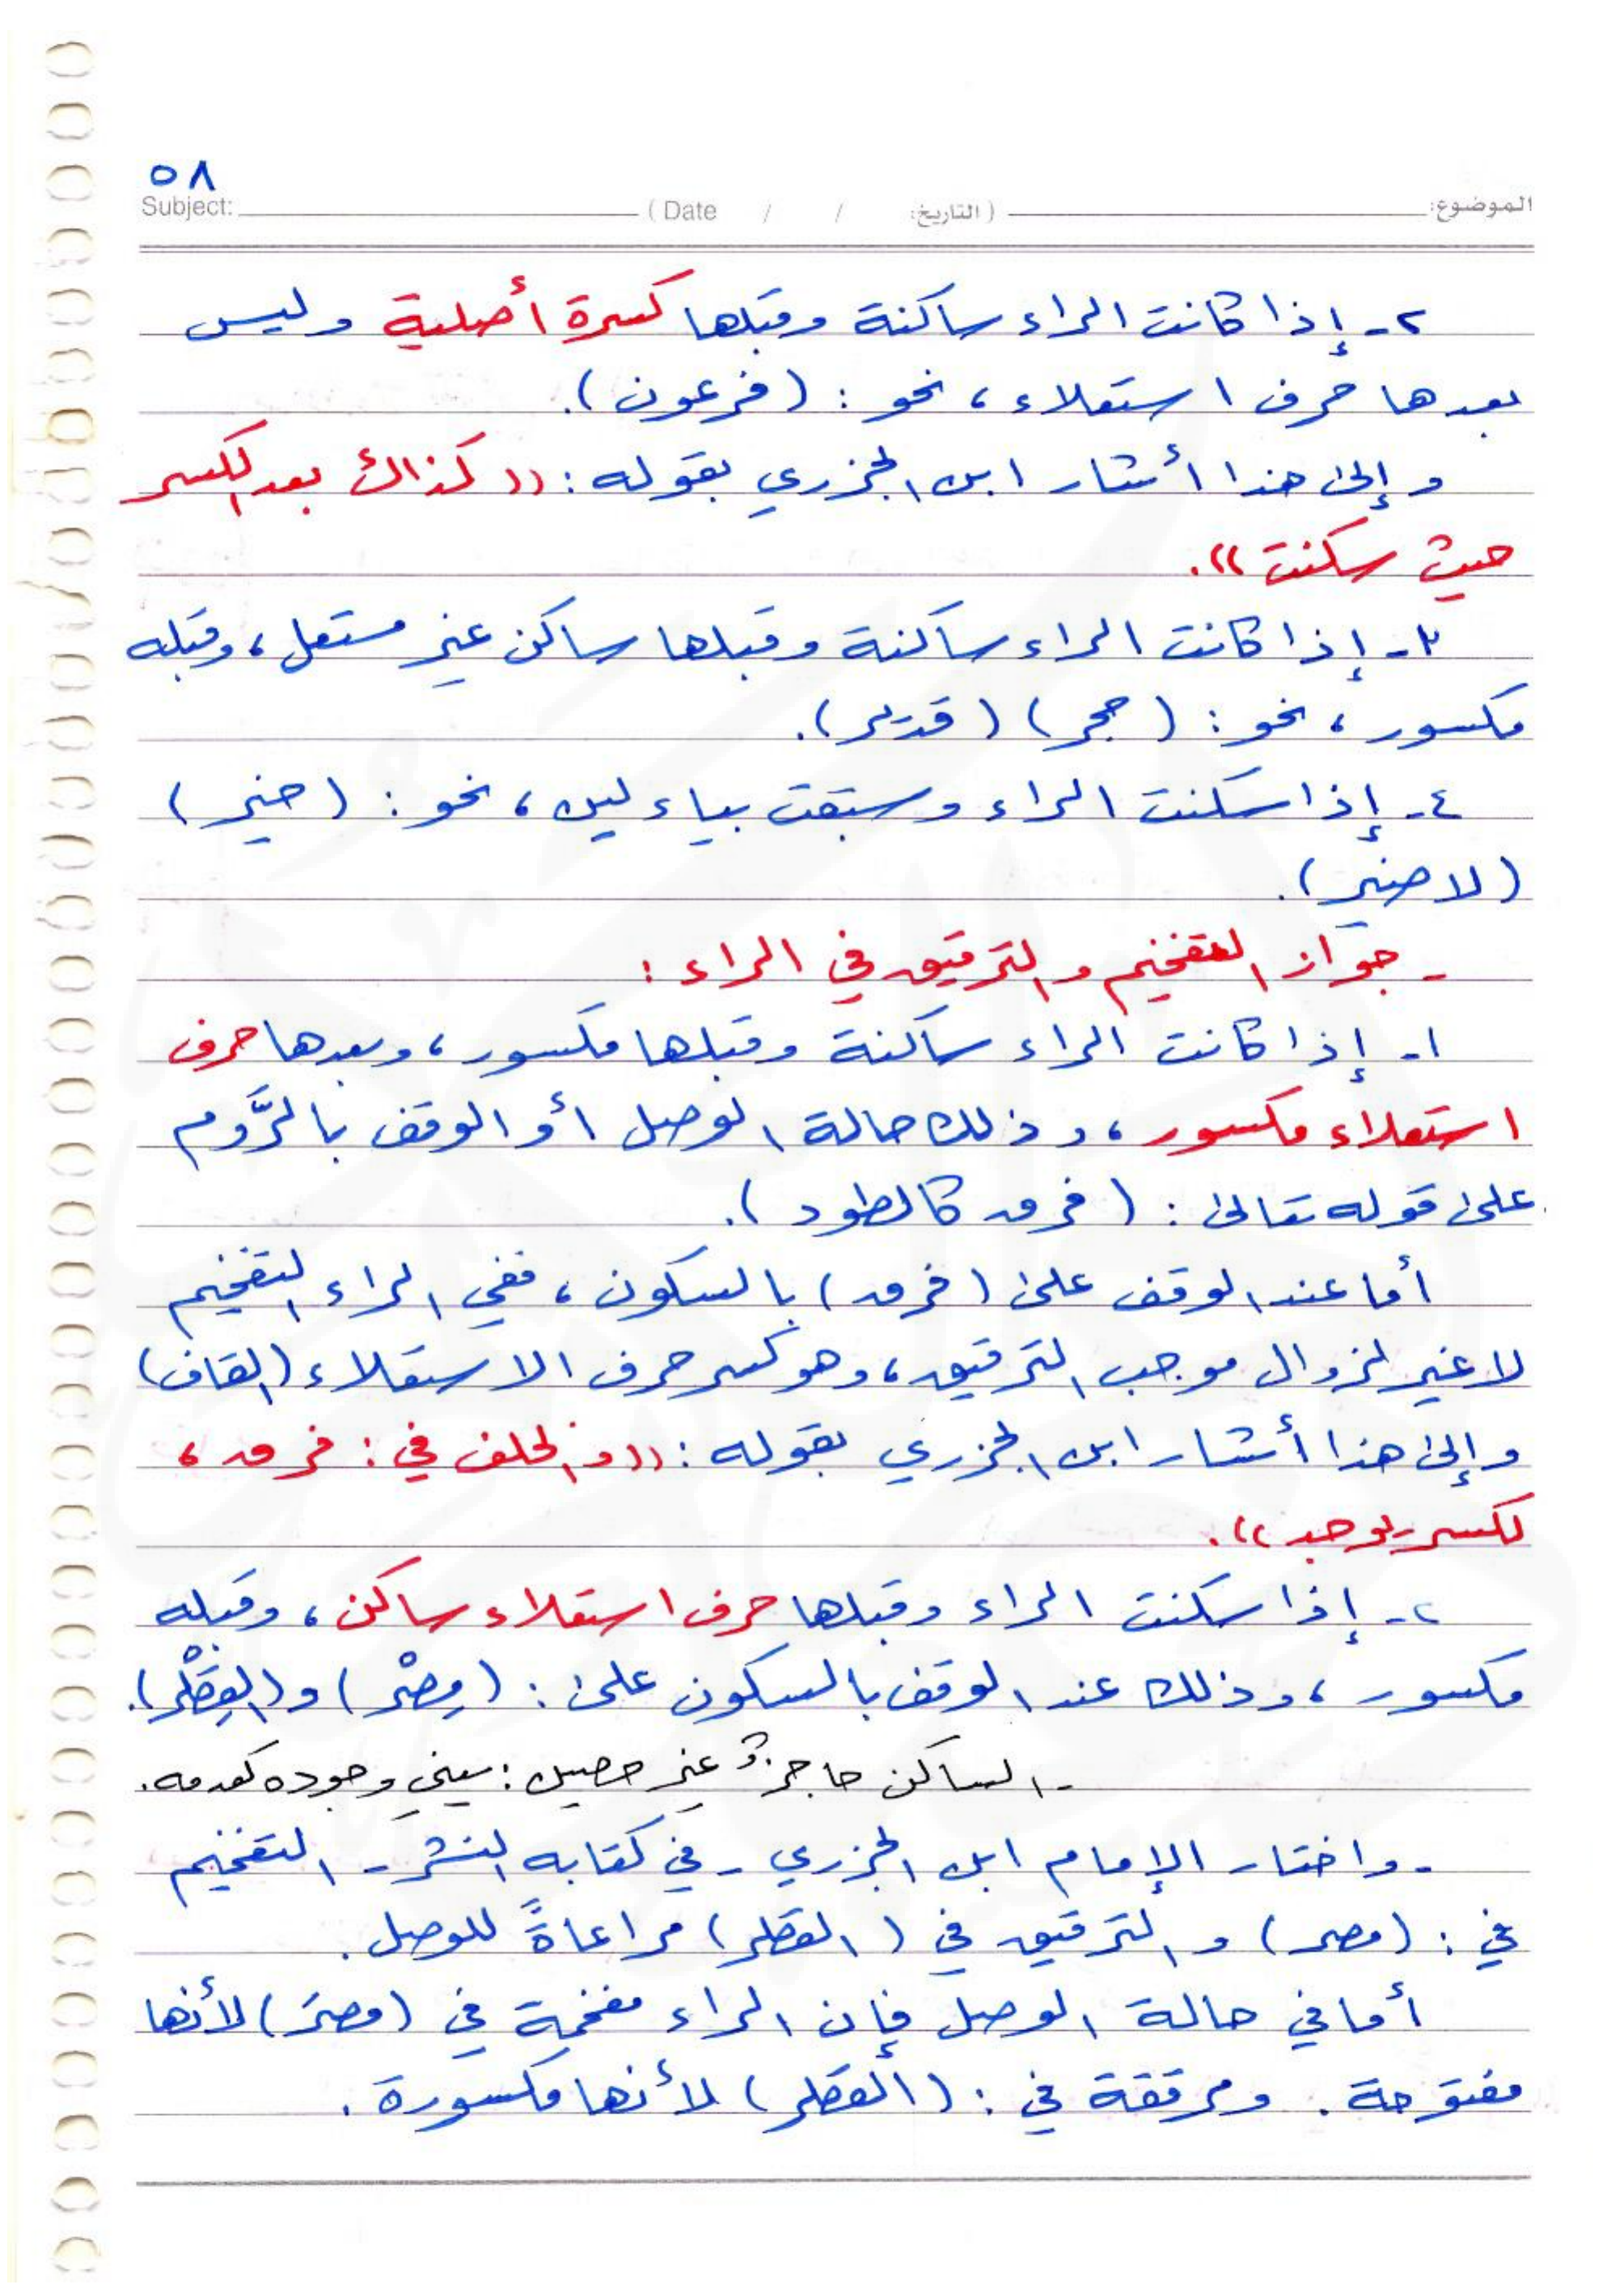 ٥٨
Subject: ( Date / / التاريخ: ) الموضوع:
٢- إذا كانت الراء ساكنة وقبلها كسرة أصلية وليس
بعدها حرف استعلاء، نحو: (فرعون).
وإلى هذا أشار ابن الجزري بقوله: ((كذاك بعد الكسر
حيث سكنت)).
٣- إذا كانت الراء ساكنة وقبلها ساكن غير مستعل، وقبله
مكسور، نحو: (حجر) (قدير).
٤- إذا سكنت الراء وسبقت بياء لين، نحو: (خير)
(لا ضير).
- جواز التفخيم والترقيق في الراء:
١- إذا كانت الراء ساكنة وقبلها مكسور، وبعدها حرف
استعلاء مكسور، وذلك حالة الوصل أو الوقف بالرَّوم
على قوله تعالى: (فرق كالطود).
أما عند الوقف على (فرق) بالسكون، ففي الراء التفخيم
لا غير لزوال موجب الترقيق، وهو كسر حرف الاستعلاء (القاف)
وإلى هذا أشار ابن الجزري بقوله: ((والخلف في: فرق،
لكسر يوجد)).
٢- إذا سكنت الراء وقبلها حرف استعلاء ساكن، وقبله
مكسور، وذلك عند الوقف بالسكون على: (مِصْر) و(القِطْر).
- الساكن حاجزٌ غير حصين: يعني وجوده كعدمه.
- واختار الإمام ابن الجزري - في كتابه النشر - التفخيم
في: (مصر) والترقيق في (القطر) مراعاةً للوصل.
أما في حالة الوصل فإن الراء مفخمة في (مصرَ) لأنها
مفتوحة. ومرققة في: (القطر) لأنها مكسورة.